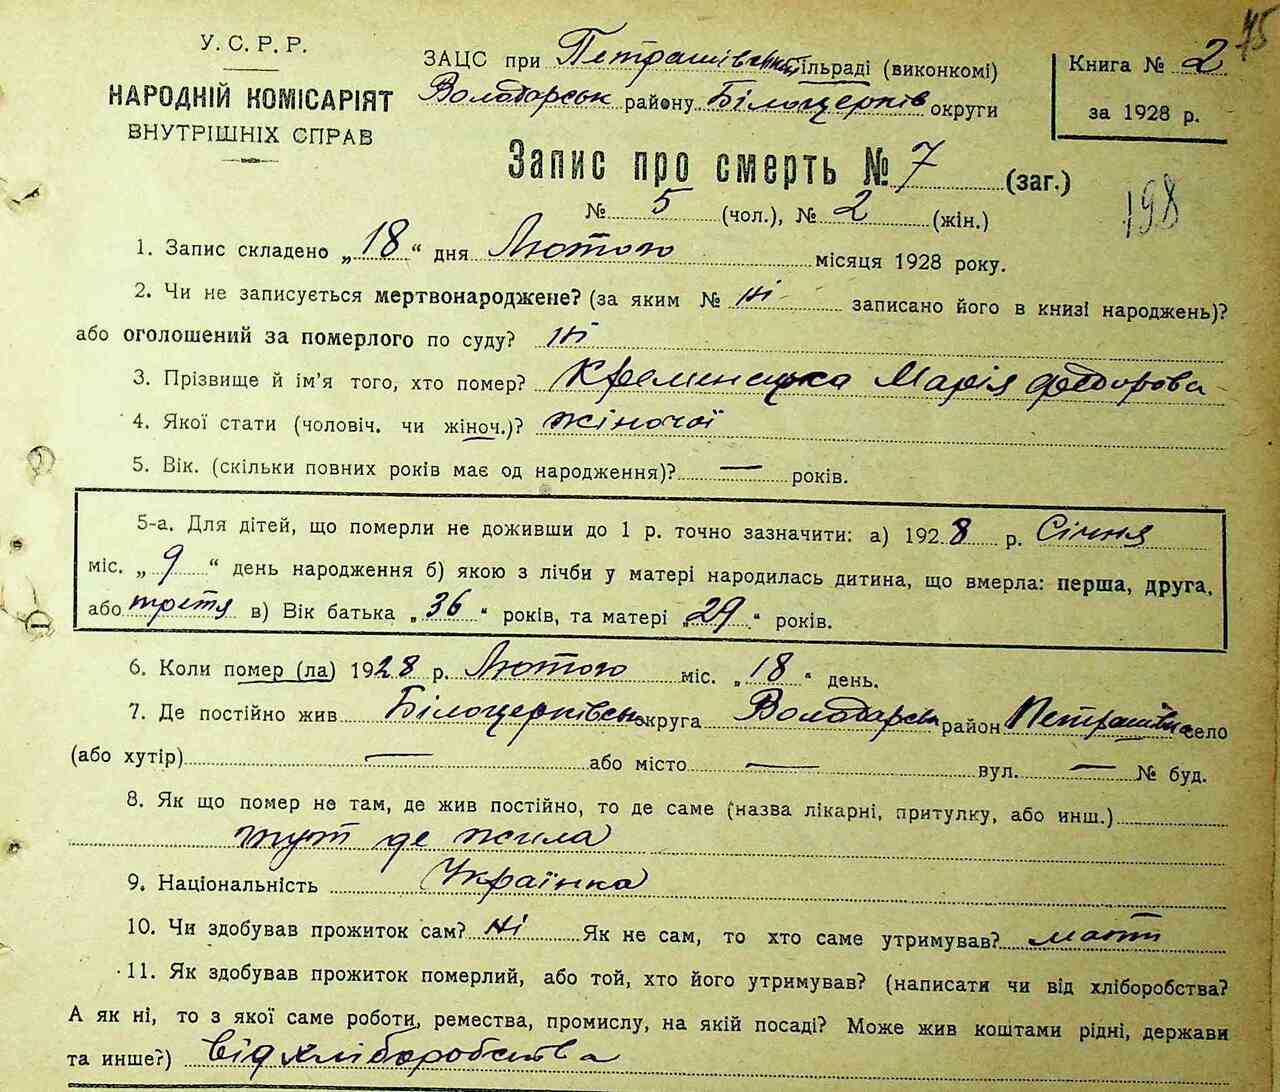 75
У. С. Р. Р.
НАРОДНІЙ КОМІСАРІЯТ
ВНУТРІШНІХ СПРАВ
ЗАЦС при Петрашівській сільраді (виконкомі)
Володарськ району Білоцерків округи
Книга № 2
за 1928 р.
Запис про смерть № 7 (заг.)
№ 5 (чол.), № 2 (жін.)
198
1. Запис складено „18“ дня Лютого місяця 1928 року.
2. Чи не записується мертвонароджене? (за яким № ні записано його в книзі народжень)?
або оголошений за померлого по суду? ні
3. Прізвище й ім'я того, хто помер? Кременецька Марія Федорова
4. Якої стати (чоловіч. чи жіноч.)? жіночої
5. Вік. (скільки повних років має од народження)? — років.
5-а. Для дітей, що померли не доживши до 1 р. точно зазначити: а) 1928 р. Січня
міс. „9“ день народження б) якою з лічби у матері народилась дитина, що вмерла: перша, друга,
або третя в) Вік батька „36“ років, та матері „29“ років.
6. Коли помер (ла) 1928 р. Лютого міс. „18“ день.
7. Де постійно жив Білоцерківськ округа Володарськ район Петрашівка село
(або хутір) — або місто — вул. — № буд.
8. Як що помер не там, де жив постійно, то де саме (назва лікарні, притулку, або инш.)
тут де жила
9. Національність Українка
10. Чи здобував прожиток сам? ні Як не сам, то хто саме утримував? мати
11. Як здобував прожиток померлий, або той, хто його утримував? (написати чи від хліборобства?
А як ні, то з якої саме роботи, ремества, промислу, на якій посаді? Може жив коштами рідні, держави
та инше?) Від хліборобства